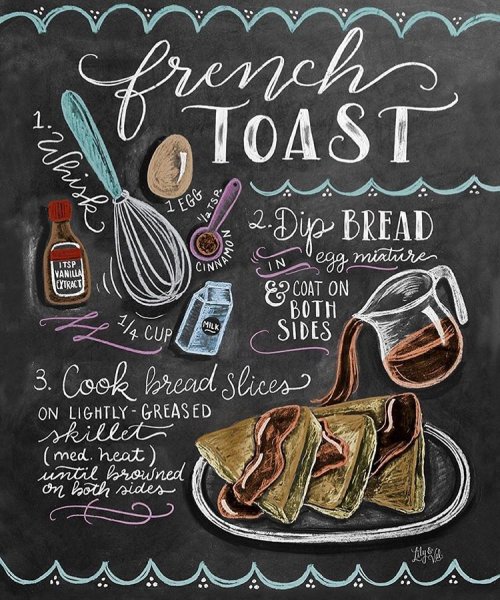 french
TOAST
1. Whisk
1 EGG
1/2 TSP.
CINNAMON
1 TSP
VANILLA
EXTRACT
1/4 CUP
MILK
2. Dip BREAD
IN egg mixture
& COAT ON
BOTH
SIDES
3. Cook bread slices
ON LIGHTLY-GREASED
skillet
(med. heat)
until browned
on both sides
Lily & Val